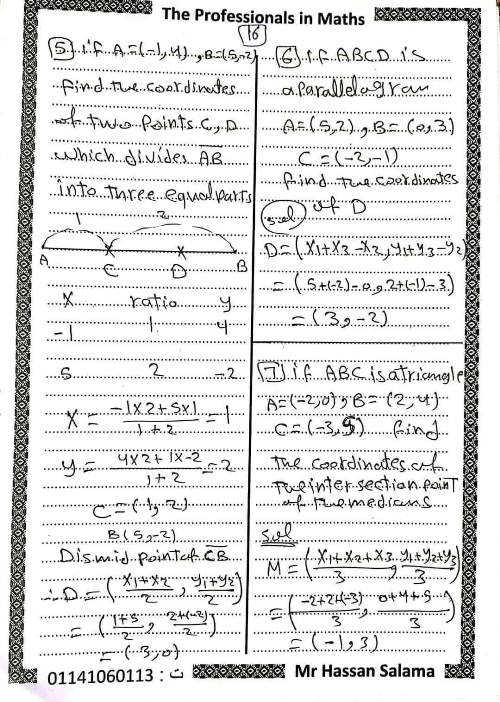 The Professionals in Maths
16
5 if A=(-1,4) , B=(5,-2)
find the coordinates
of two points C, D
which divides AB
into three equal parts
1 2
A C D B
X ratio y
-1 1 4
5 2 -2
X = -1x2+5x1 / 1+2 = 1
y = 4x2+1x-2 / 1+2 = 2
C = (1, 2)
B(5,-2)
D is mid point of CB
∴ D = (x1+x2 / 2 , y1+y2 / 2)
= (1+5 / 2 , 2+(-2) / 2)
= (3,0)
6 if ABCD is
a parallelogram
A=(5,2) , B=(0,3)
C=(-2,-1)
find the coordinates
of D
sol
D=(x1+x3-x2, y1+y3-y2)
=(5+(-2)-0, 2+(-1)-3)
=(3,-2)
7 if ABC is a triangle
A=(-2,0) , B=(2,4)
C=(-3,5) find
the coordinates of
the inter section point
of the medians
sol
M=(x1+x2+x3 / 3 , y1+y2+y3 / 3)
=(-2+2+(-3) / 3 , 0+4+5 / 3)
=(-1,3)
01141060113 : ت
Mr Hassan Salama